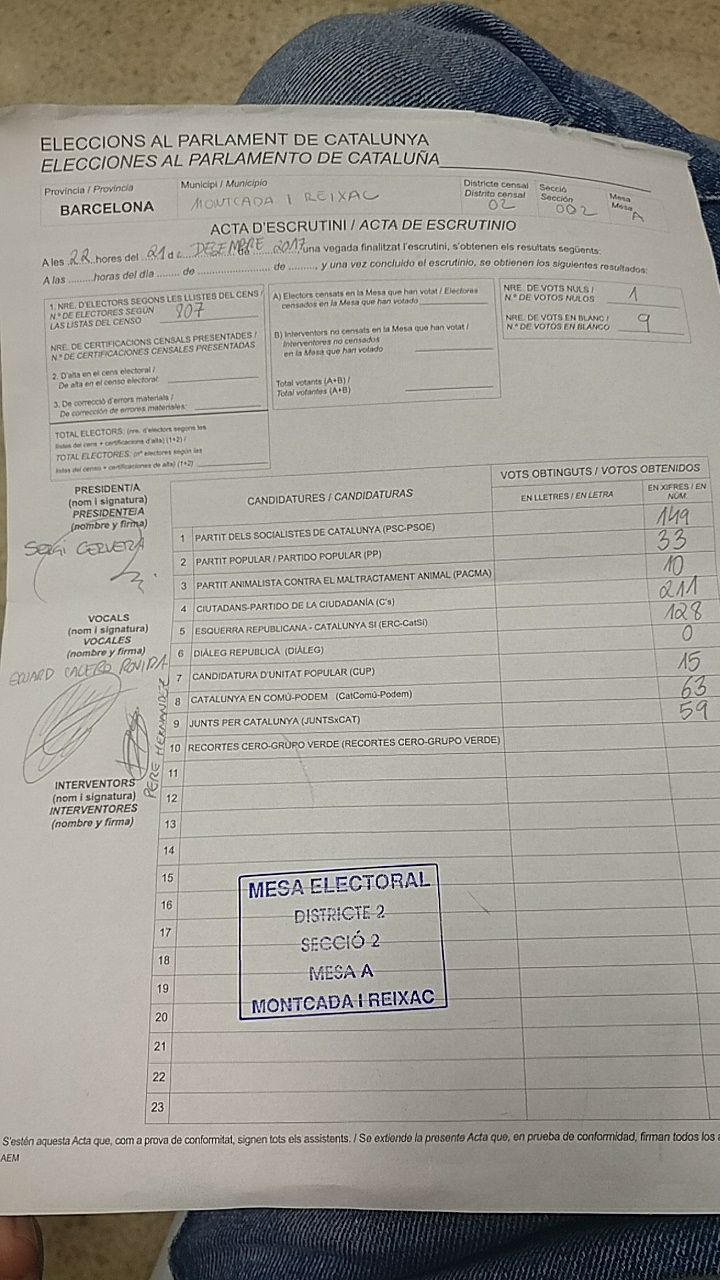 ELECCIONS AL PARLAMENT DE CATALUNYA
ELECCIONES AL PARLAMENTO DE CATALUÑA
Provincia / Provincia
BARCELONA
Municipi / Municipio
MONTCADA I REIXAC
Districte censal
Distrito censal
02
Secció
Sección
002
Mesa
Mesa
A
ACTA D'ESCRUTINI / ACTA DE ESCRUTINIO
A les 22 hores del 21 d DESEMBRE de 2017, una vegada finalitzat l'escrutini, s'obtenen els resultats següents:
A las ........ horas del día ....... de ...................... de ........, y una vez concluido el escrutinio, se obtienen los siguientes resultados:
1. NRE. D'ELECTORS SEGONS LES LLISTES DEL CENS /
N.º DE ELECTORES SEGÚN
LAS LISTAS DEL CENSO 807
NRE. DE CERTIFICACIONS CENSALS PRESENTADES /
N.º DE CERTIFICACIONES CENSALES PRESENTADAS
2. D'alta en el cens electoral /
De alta en el censo electoral:
3. De correcció d'errors materials /
De corrección de errores materiales:
TOTAL ELECTORS: (nre. d'electors segons les
llistes del cens + certificacions d'alta) (1+2) /
TOTAL ELECTORES: (nº electores según las
listas del censo + certificaciones de alta) (1+2)
A) Electors censats en la Mesa que han votat / Electores
censados en la Mesa que han votado
B) Interventors no censats en la Mesa que han votat /
Interventores no censados
en la Mesa que han votado
Total votants (A+B) /
Total votantes (A+B)
NRE. DE VOTS NULS /
N.º DE VOTOS NULOS 1
NRE. DE VOTS EN BLANC /
N.º DE VOTOS EN BLANCO 9
PRESIDENT/A
(nom i signatura)
PRESIDENTE/A
(nombre y firma)
SERGI CERVERA
VOCALS
(nom i signatura)
VOCALES
(nombre y firma)
EDUARD CALERO ROVIDA
PERE HERNANDEZ
INTERVENTORS
(nom i signatura)
INTERVENTORES
(nombre y firma)
CANDIDATURES / CANDIDATURAS
VOTS OBTINGUTS / VOTOS OBTENIDOS
EN LLETRES / EN LETRA
EN XIFRES / EN NÚM.
1 PARTIT DELS SOCIALISTES DE CATALUNYA (PSC-PSOE) 149
2 PARTIT POPULAR / PARTIDO POPULAR (PP) 33
3 PARTIT ANIMALISTA CONTRA EL MALTRACTAMENT ANIMAL (PACMA) 10
4 CIUTADANS-PARTIDO DE LA CIUDADANÍA (C's) 211
5 ESQUERRA REPUBLICANA - CATALUNYA SI (ERC-CatSí) 128
6 DIÀLEG REPUBLICÀ (DIÀLEG) 0
7 CANDIDATURA D'UNITAT POPULAR (CUP) 15
8 CATALUNYA EN COMÚ-PODEM (CatComú-Podem) 63
9 JUNTS PER CATALUNYA (JUNTSxCAT) 59
10 RECORTES CERO-GRUPO VERDE (RECORTES CERO-GRUPO VERDE)
11
12
13
14
15
16
17
18
19
20
21
22
23
MESA ELECTORAL
DISTRICTE 2
SECCIÓ 2
MESA A
MONTCADA I REIXAC
S'estén aquesta Acta que, com a prova de conformitat, signen tots els assistents. / Se extiende la presente Acta que, en prueba de conformidad, firman todos los
AEM